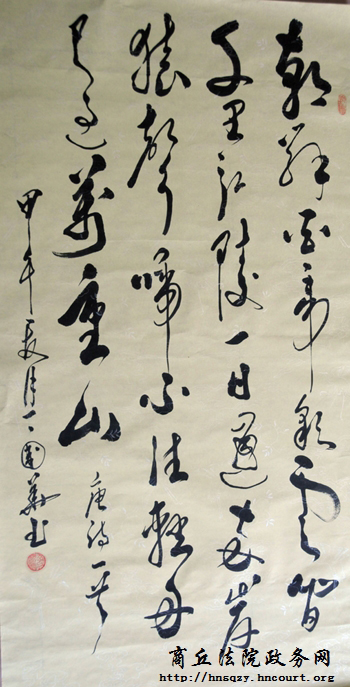 朝辭白帝彩雲間
千里江陵一日還兩岸
猿聲啼不住輕舟
已過萬重山 唐詩一首
甲午 月 國華书
商丘法院政务网
http://hnsqzy.hncourt.org